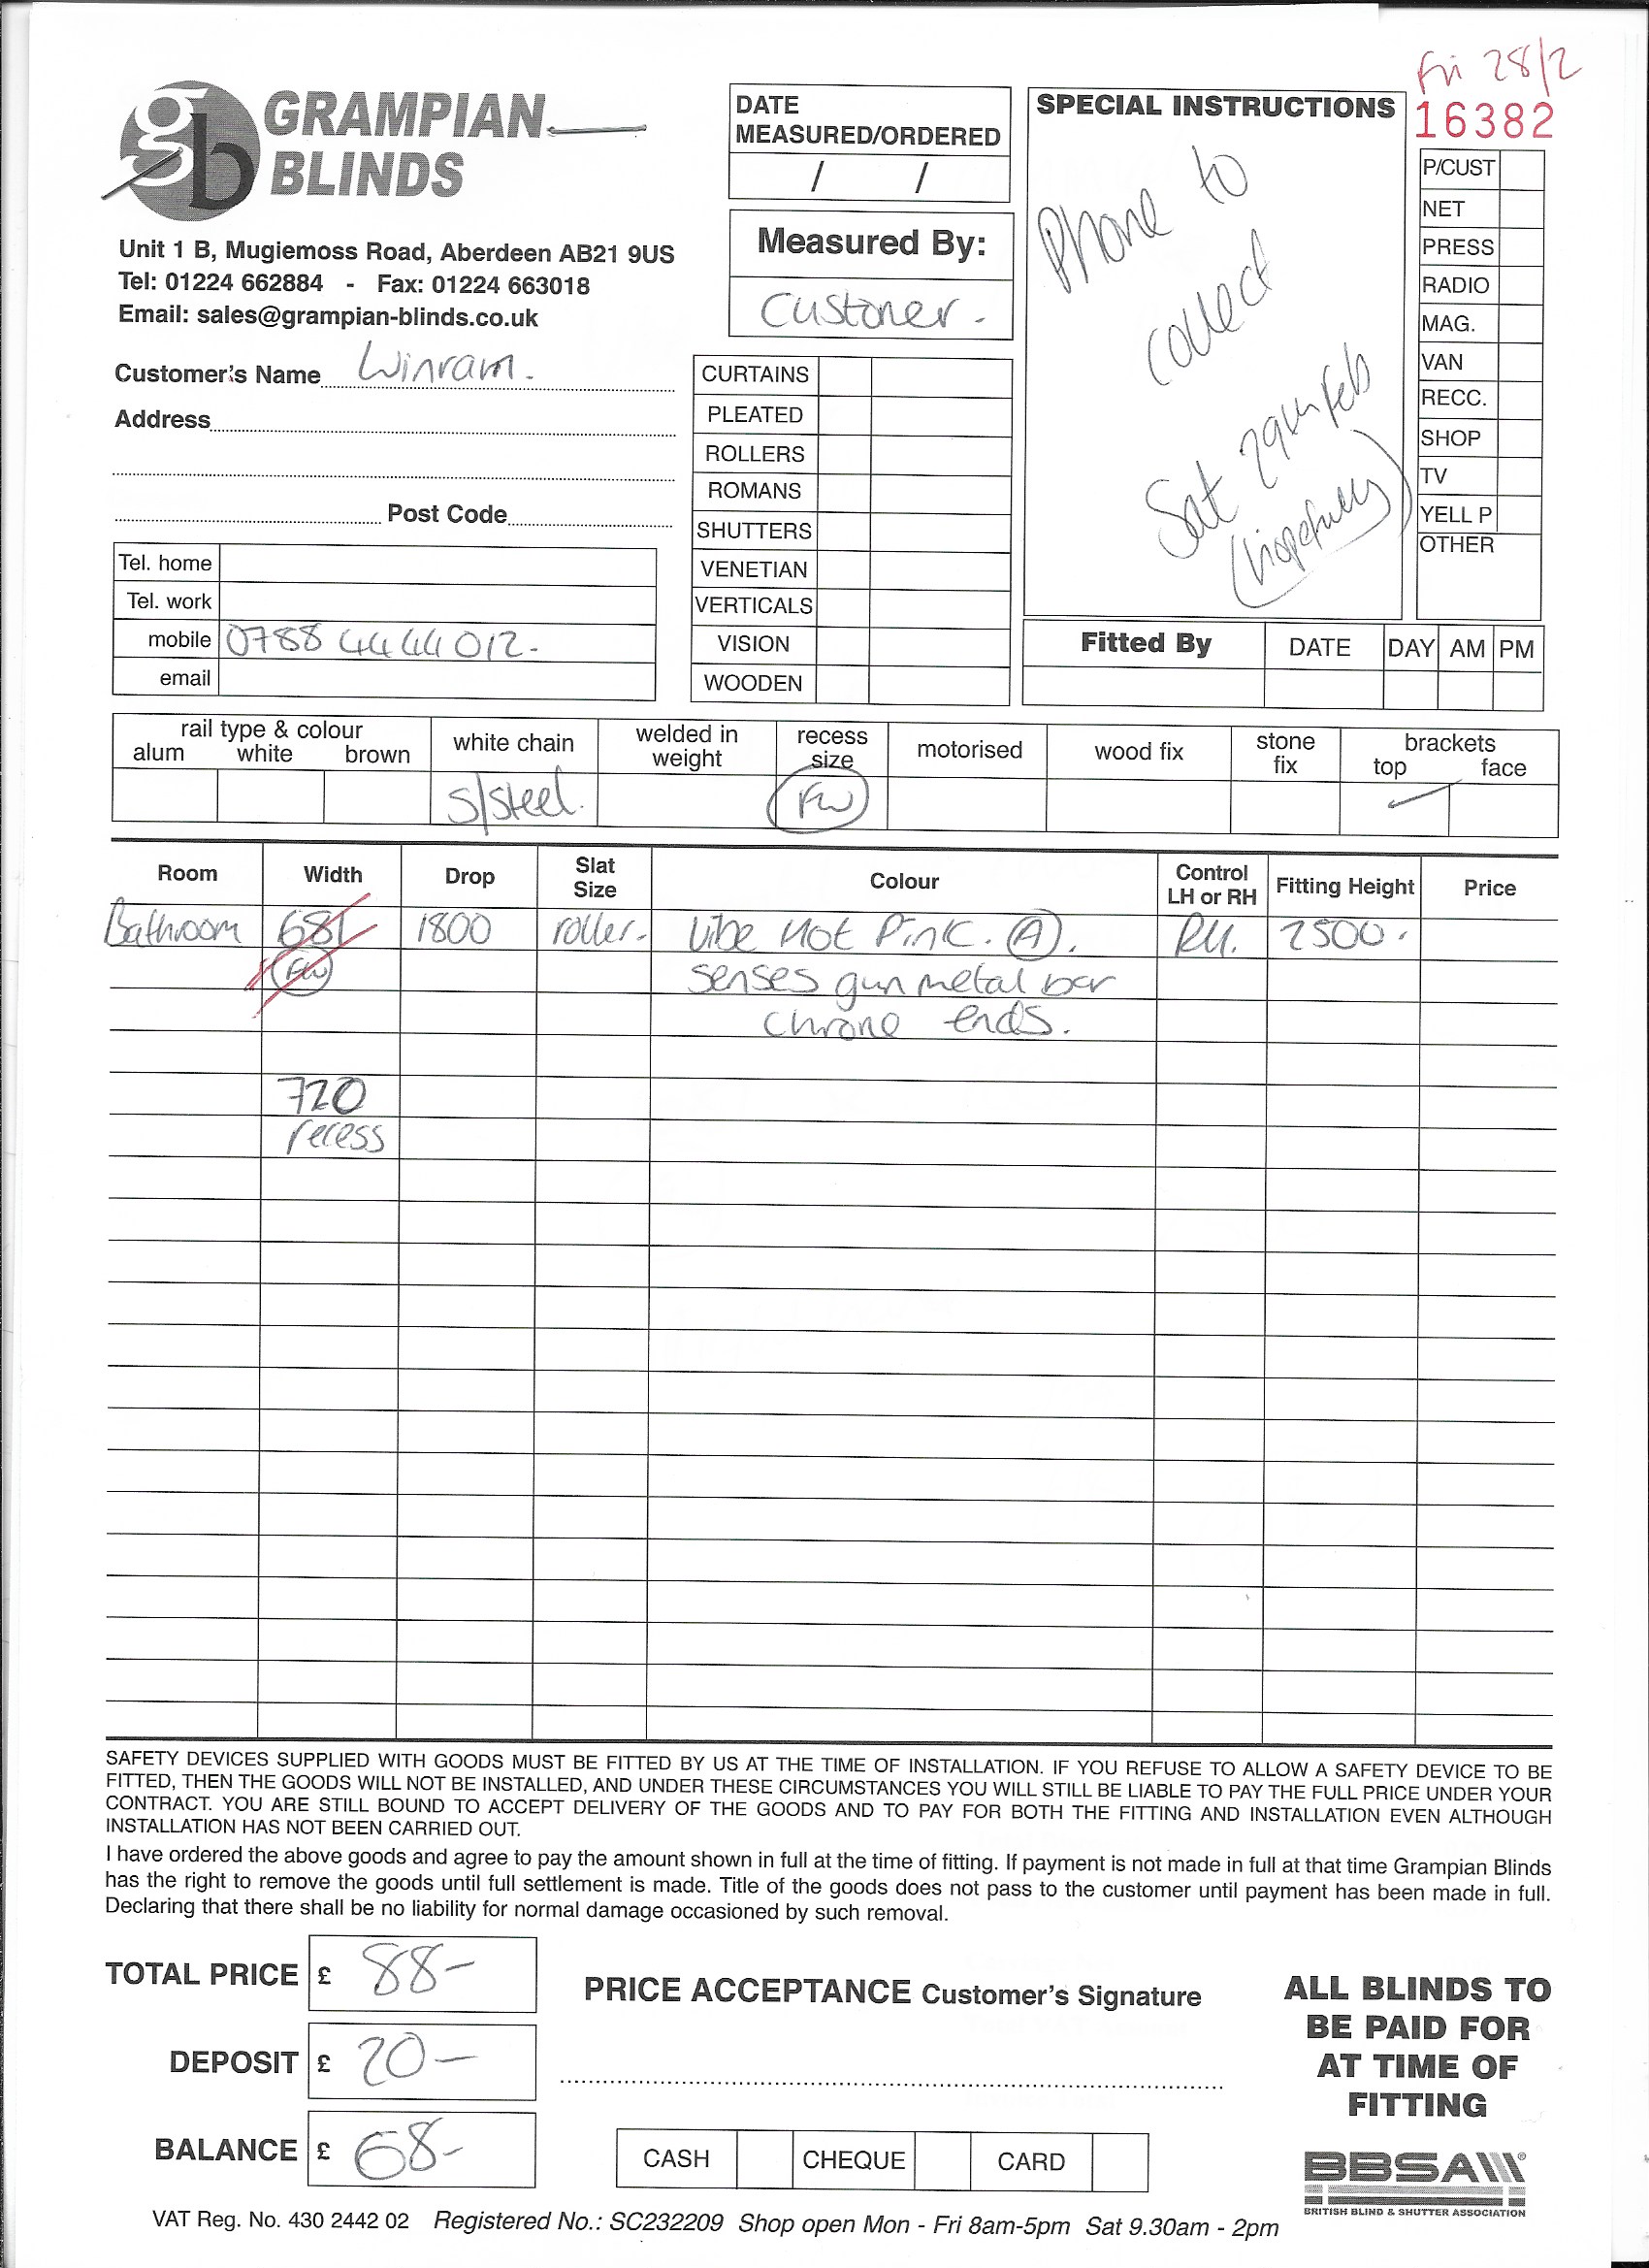 Fri 28/2
16382
gb GRAMPIAN
BLINDS
Unit 1 B, Mugiemoss Road, Aberdeen AB21 9US
Tel: 01224 662884 - Fax: 01224 663018
Email: sales@grampian-blinds.co.uk
Customer's Name Winram.
Address
Post Code
Tel. home
Tel. work
mobile 0788 4444012-
email
DATE
MEASURED/ORDERED
/ /
Measured By:
Customer.
CURTAINS
PLEATED
ROLLERS
ROMANS
SHUTTERS
VENETIAN
VERTICALS
VISION
WOODEN
SPECIAL INSTRUCTIONS
Phone to
collect
Sat 29th Feb
(hopefully)
P/CUST
NET
PRESS
RADIO
MAG.
VAN
RECC.
SHOP
TV
YELL P
OTHER
Fitted By DATE DAY AM PM
rail type & colour
alum white brown
white chain
S/Steel.
welded in
weight
recess
size
FW
motorised
wood fix
stone
fix
brackets
top face
Room Width Drop Slat Size Colour Control LH or RH Fitting Height Price
Bathroom 681 1800 roller. Vibe Hot Pink. A. RH. 2500.
FW senses gun metal bar
chrome ends.
720
recess
SAFETY DEVICES SUPPLIED WITH GOODS MUST BE FITTED BY US AT THE TIME OF INSTALLATION. IF YOU REFUSE TO ALLOW A SAFETY DEVICE TO BE
FITTED, THEN THE GOODS WILL NOT BE INSTALLED, AND UNDER THESE CIRCUMSTANCES YOU WILL STILL BE LIABLE TO PAY THE FULL PRICE UNDER YOUR
CONTRACT. YOU ARE STILL BOUND TO ACCEPT DELIVERY OF THE GOODS AND TO PAY FOR BOTH THE FITTING AND INSTALLATION EVEN ALTHOUGH
INSTALLATION HAS NOT BEEN CARRIED OUT.
I have ordered the above goods and agree to pay the amount shown in full at the time of fitting. If payment is not made in full at that time Grampian Blinds
has the right to remove the goods until full settlement is made. Title of the goods does not pass to the customer until payment has been made in full.
Declaring that there shall be no liability for normal damage occasioned by such removal.
TOTAL PRICE £ 88-
DEPOSIT £ 20-
BALANCE £ 68-
PRICE ACCEPTANCE Customer's Signature
CASH CHEQUE CARD
ALL BLINDS TO
BE PAID FOR
AT TIME OF
FITTING
BBSA
BRITISH BLIND & SHUTTER ASSOCIATION
VAT Reg. No. 430 2442 02 Registered No.: SC232209 Shop open Mon - Fri 8am-5pm Sat 9.30am - 2pm